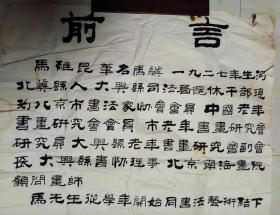 前言
馬雄昆筆名馬驥一九二七年生河
北蠡縣人大興縣司法局退休干部現
為北京市書法家协會會員中國老年
書畫研究會會員市老年書畫研究會
研究員大興縣老年書畫研究會副會
長大興縣書协理事北京南海畫院
顧問畫師
馬先生從學年開始同書法藝術結下